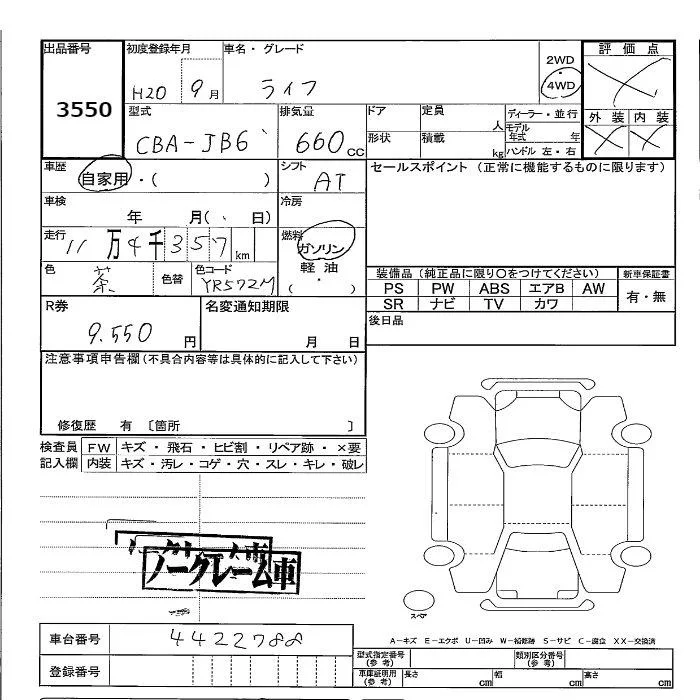 出品番号 初度登録年月 車名・グレード 2WD ・ 4WD 評価点
3550 H20 9月 ライフ
型式 排気量 ドア 定員 人 ディーラー・並行 外装 内装
CBA-JB6 660cc 形状 積載 kg モデル年式 年 ハンドル 左・右
車歴 自家用・( ) シフト AT セールスポイント (正常に機能するものに限ります)
車検 年 月( 、 日) 冷房
走行 11万4千357km 燃料 ガソリン
色 茶 色替 色コード YR572M 軽油 ・ ( ) 装備品(純正品に限り○をつけてください) 新車保証書
PS PW ABS エアB AW 有・無
R券 名変通知期限 SR ナビ TV カワ
9.550円 月 日 後日品
注意事項申告欄(不具合内容等は具体的に記入して下さい)
修復歴 有 〔箇所 〕
検査員 FW キズ・飛石・ヒビ割・リペア跡・×要
記入欄 内装 キズ・汚レ・コゲ・穴・スレ・キレ・破レ
ノークレーム車
スペア
A-キズ E-エクボ U-凹み W-補修跡 S-サビ C-腐食 XX-交換済
車台番号 4422788 型式指定番号(参考) 類別区分番号(参考)
登録番号 車庫証明用(参考) 長さ cm 幅 cm 高さ cm